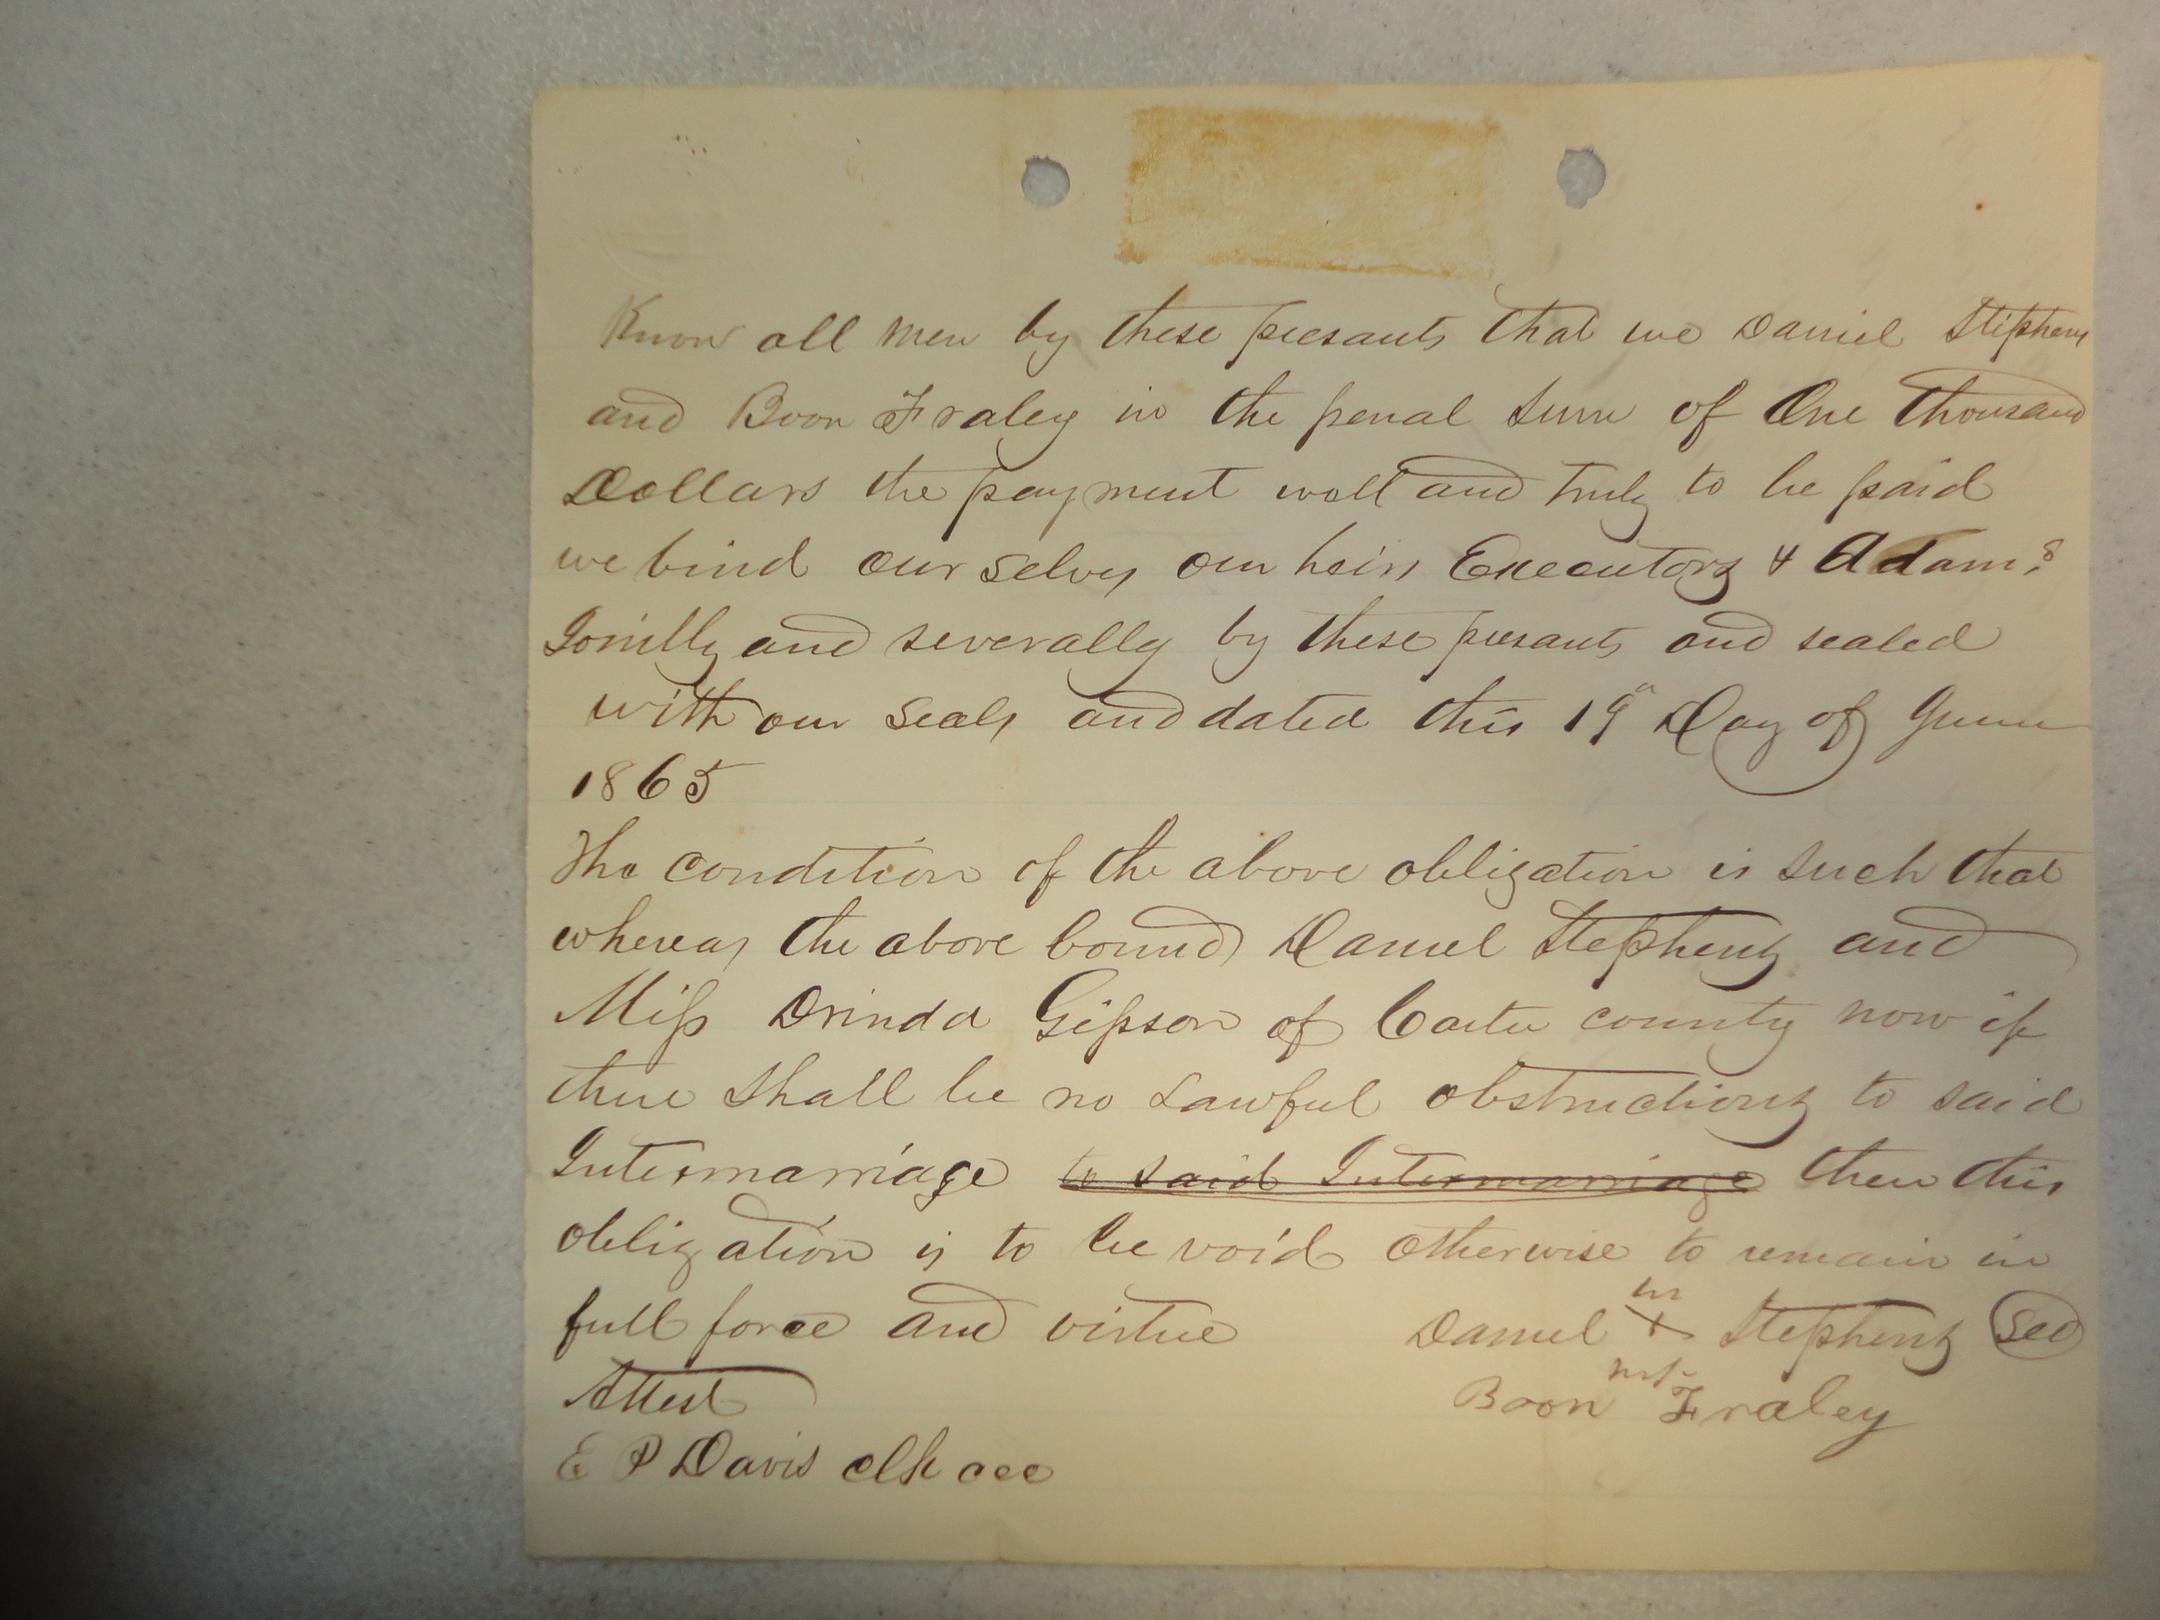 Know all men by these presants that we Daniel Stephens
and Boon Fraley in the penal sum of One thousand
Dollars the payment well and truly to be paid
we bind our selves our heirs Executors & Adams
Joinlly and severally by these presants and sealed
with our seals and dated this 19" Day of June
1865
The condition of the above obligation is such that
whereas the above bound Daniel Stephens and
Miss Orinda Gipson of Carter county now if
there shall be no Lawful obstructions to said
Intermarriage to said Intermarriage then this
obligation is to be void otherwise to remain in
full force and virtue Daniel his x mk Stephens
Boon Fraley
Attest
E P Davis clk ccc